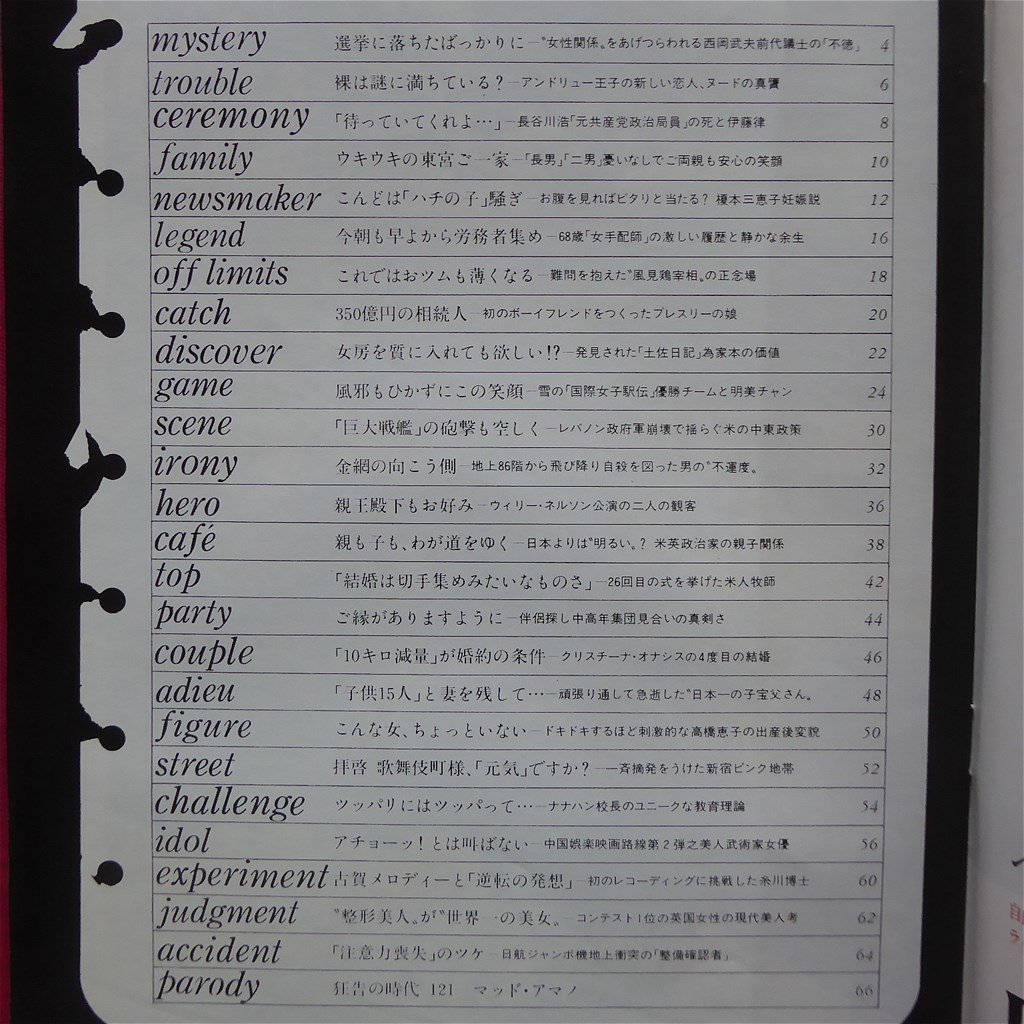 mystery 選挙に落ちたばっかりに―〝女性関係〟をあげつらわれる西岡武夫前代議士の「不徳」 4
trouble 裸は謎に満ちている？―アンドリュー王子の新しい恋人、ヌードの真贋 6
ceremony 「待っていてくれよ…」―長谷川浩「元共産党政治局員」の死と伊藤律 8
family ウキウキの東宮ご一家―「長男」「二男」憂いなしでご両親も安心の笑顔 10
newsmaker こんどは「ハチの子」騒ぎ―お腹を見ればピタリと当たる？ 榎本三恵子妊娠説 12
legend 今朝も早よから労務者集め―68歳「女手配師」の激しい履歴と静かな余生 16
off limits これではおツムも薄くなる―難問を抱えた〝風見鶏宰相〟の正念場 18
catch 350億円の相続人―初のボーイフレンドをつくったプレスリーの娘 20
discover 女房を質に入れても欲しい!?―発見された「土佐日記」為家本の価値 22
game 風邪もひかずにこの笑顔―雪の「国際女子駅伝」優勝チームと明美チャン 24
scene 「巨大戦艦」の砲撃も空しく―レバノン政府軍崩壊で揺らぐ米の中東政策 30
irony 金網の向こう側―地上86階から飛び降り自殺を図った男の〝不運度〟 32
hero 親王殿下もお好み―ウィリー・ネルソン公演の二人の観客 36
café 親も子も、わが道をゆく―日本よりは〝明るい〟？ 米英政治家の親子関係 38
top 「結婚は切手集めみたいなものさ」―26回目の式を挙げた米人牧師 42
party ご縁がありますように―伴侶探し中高年集団見合いの真剣さ 44
couple 「10キロ減量」が婚約の条件―クリスチーナ・オナシスの4度目の結婚 46
adieu 「子供15人」と妻を残して…―頑張り通して急逝した〝日本一の子宝父さん〟 48
figure こんな女、ちょっといない―ドキドキするほど刺激的な高橋恵子の出産後変貌 50
street 拝啓 歌舞伎町様、「元気」ですか？―一斉摘発をうけた新宿ピンク地帯 52
challenge ツッパリにはツッパって…―ナナハン校長のユニークな教育理論 54
idol アチョーッ！とは叫ばない―中国娯楽映画路線第2弾之美人武術家女優 56
experiment 古賀メロディーと「逆転の発想」―初のレコーディングに挑戦した糸川博士 60
judgment 〝整形美人〟が〝世界一の美女〟―コンテスト1位の英国女性の現代美人考 62
accident 「注意力喪失」のツケ―日航ジャンボ機地上衝突の「整備確認者」 64
parody 狂告の時代 121 マッド・アマノ 66